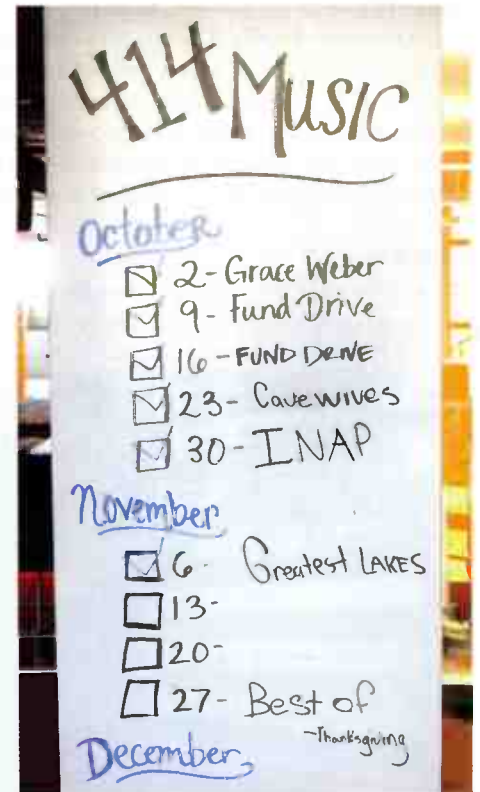 414 MUSIC
October
2- Grace Weber
9- Fund Drive
16- FUND DRIVE
23- Cavewives
30- INAP
November
6- Greatest LAKES
13-
20-
27- Best of
~Thanksgiving
December